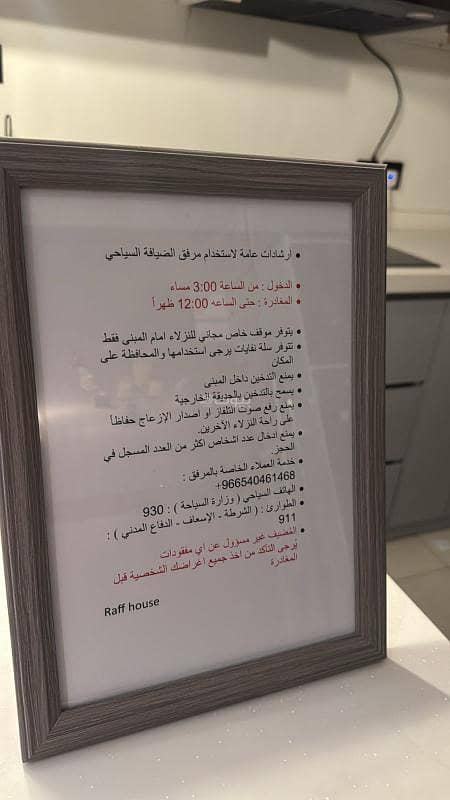 ارشادات عامة لاستخدام مرفق الضيافة السياحي
الدخول : من الساعة 3:00 مساء
المغادرة : حتى الساعه 12:00 ظهراً
يتوفر موقف خاص مجاني للنزلاء امام المبنى فقط
تتوفر سلة نفايات يرجى استخدامها والمحافظة على
المكان
يمنع التدخين داخل المبنى
يسمح بالتدخين بالحديقة الخارجية
يمنع رفع صوت التلفاز او اصدار الإزعاج حفاظاً
على راحة النزلاء الآخرين.
يمنع ادخال عدد اشخاص اكثر من العدد المسجل في
الحجز.
خدمة العملاء الخاصة بالمرفق :
+966540461468
الهاتف السياحي ( وزارة السياحة ) : 930
الطوارئ : ( الشرطة - الإسعاف - الدفاع المدني ) :
911
المُضيف غير مسؤول عن اي مفقودات
يُرجى التأكد من اخذ جميع اغراضك الشخصية قبل
المغادرة
Raff house